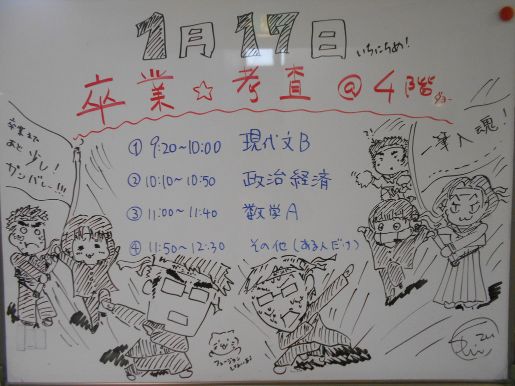 1月17日 いちにちめ!
卒業☆考査@4階
卒業まで
あと少し!
ガンバレ!!!
入魂!
① 9:20~10:00 現代文B
② 10:10~10:50 政治経済
③ 11:00~11:40 数学A
④ 11:50~12:30 その他(あるんだけ)
フュージョン